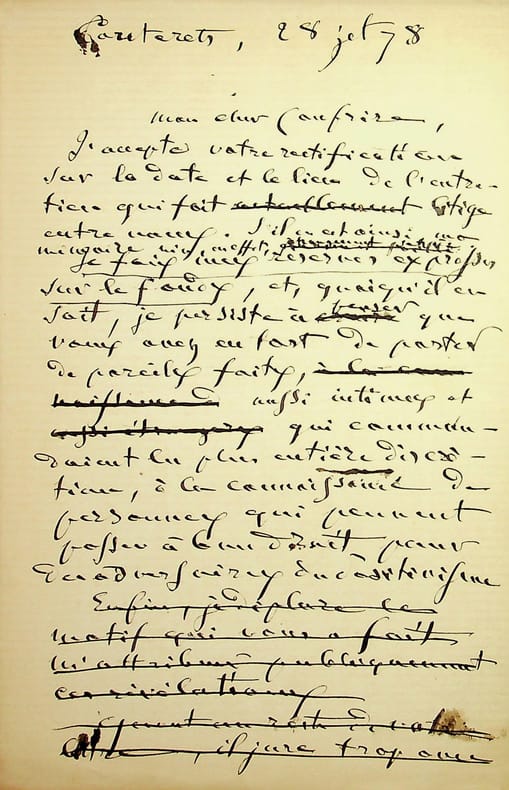 Cauterets, 28 jet 78
Mon cher Confrère,
J'accepte votre rectification
sur la date et le lieu de l'entre-
tien qui fait actuellement litige
entre nous. S'il en est ainsi, ma
mémoire
Je fais mes réserves expresses
sur le fond, et, quoiqu'il en
soit, je persiste à penser que
vous avez eu tort de porter
de pareils faits, à la con
naissance aussi intimes et
aussi étrangers qui comman-
daient la plus entière discré-
tion, à la connaissance de
personnes qui peuvent
passer à bon droit pour
des adversaires du
Enfin, je déplore le
motif qui vous a fait
m'attribuer publiquement
ces révélations
, il jure trop avec